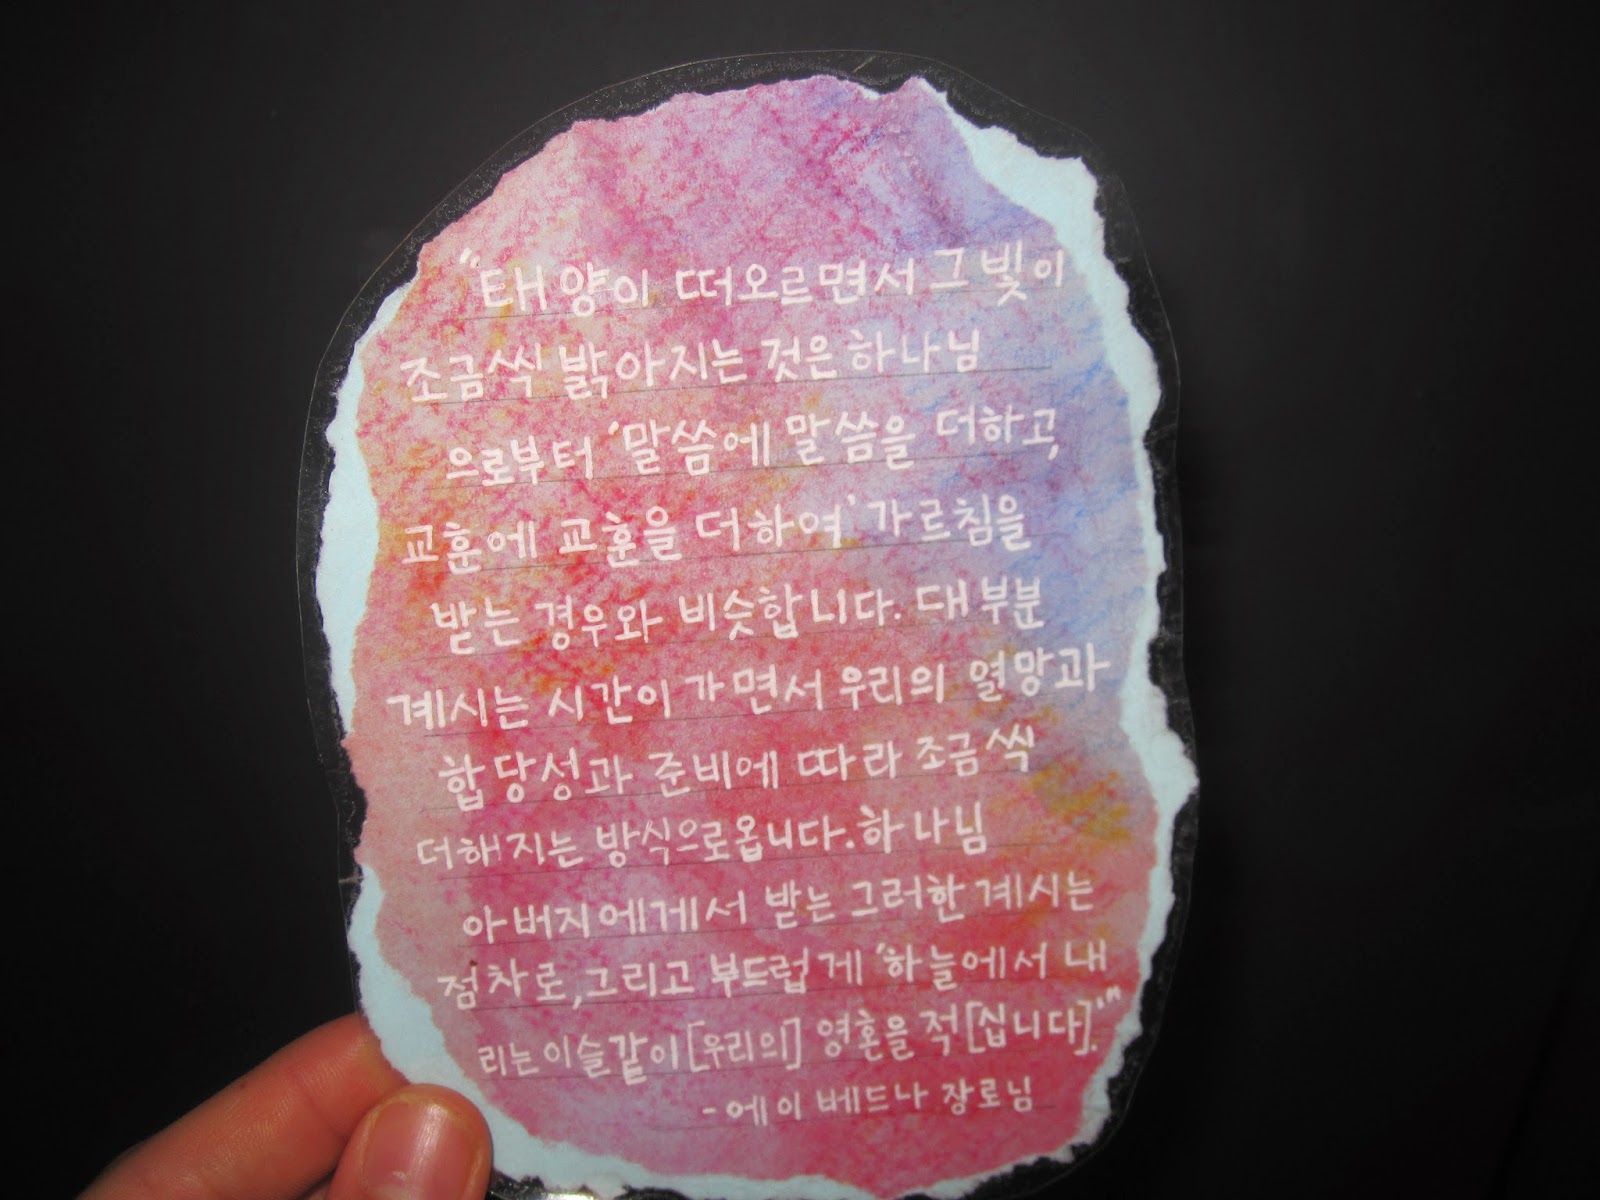 "태양이 떠오르면서 그 빛이
조금씩 밝아지는 것은 하나님
으로부터 '말씀에 말씀을 더하고,
교훈에 교훈을 더하여' 가르침을
받는 경우와 비슷합니다. 대부분
계시는 시간이 가면서 우리의 열망과
합당성과 준비에 따라 조금씩
더해지는 방식으로 옵니다. 하나님
아버지에게서 받는 그러한 계시는
점차로, 그리고 부드럽게 '하늘에서 내
리는 이슬같이 [우리의] 영혼을 적[십니다].'"
- 에이 베드나 장로님